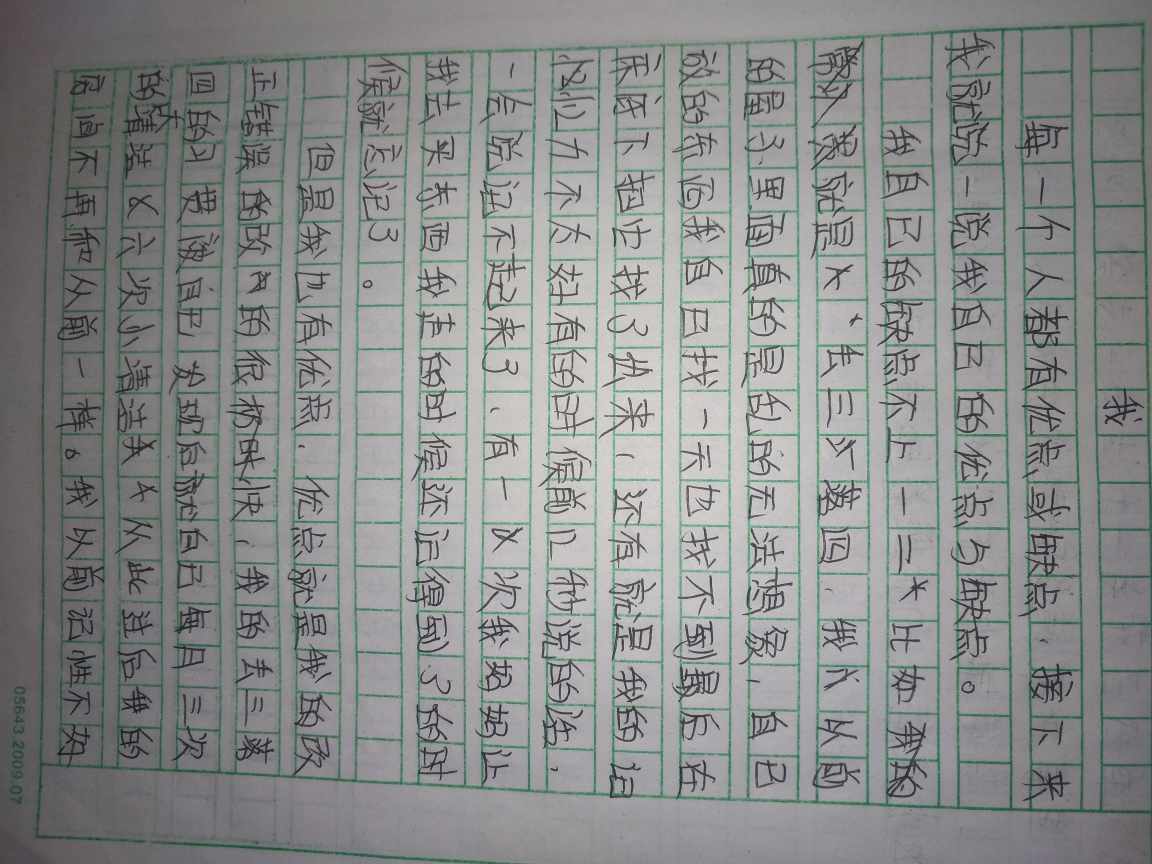 我
每一个人都有优点或缺点、接下来
我就说一说我自己的优点与缺点。
我自己的缺点不上一二 比如
就是 、丢三 落四、我 以前
的屋子里面真的是乱的无法想象、自己
放的东西我自己找一天也找不到最后在
床底下把它找了出来、还有就是我的记
忆力不太好有的时候前几秒说的话、
一会说话不起来了、有一 次我妈妈让
我去买东西我走的时候还记得到了的时
候就忘记了。
但是我也有优点、优点就是我的改
正错误的改 的很 快、我的丢三落
四的习惯被自己发现后 自己每月三次
的清洁 六次小清洁 从此 后我的
房间不再和从前一样。我以前记性不好
05643.2009.07